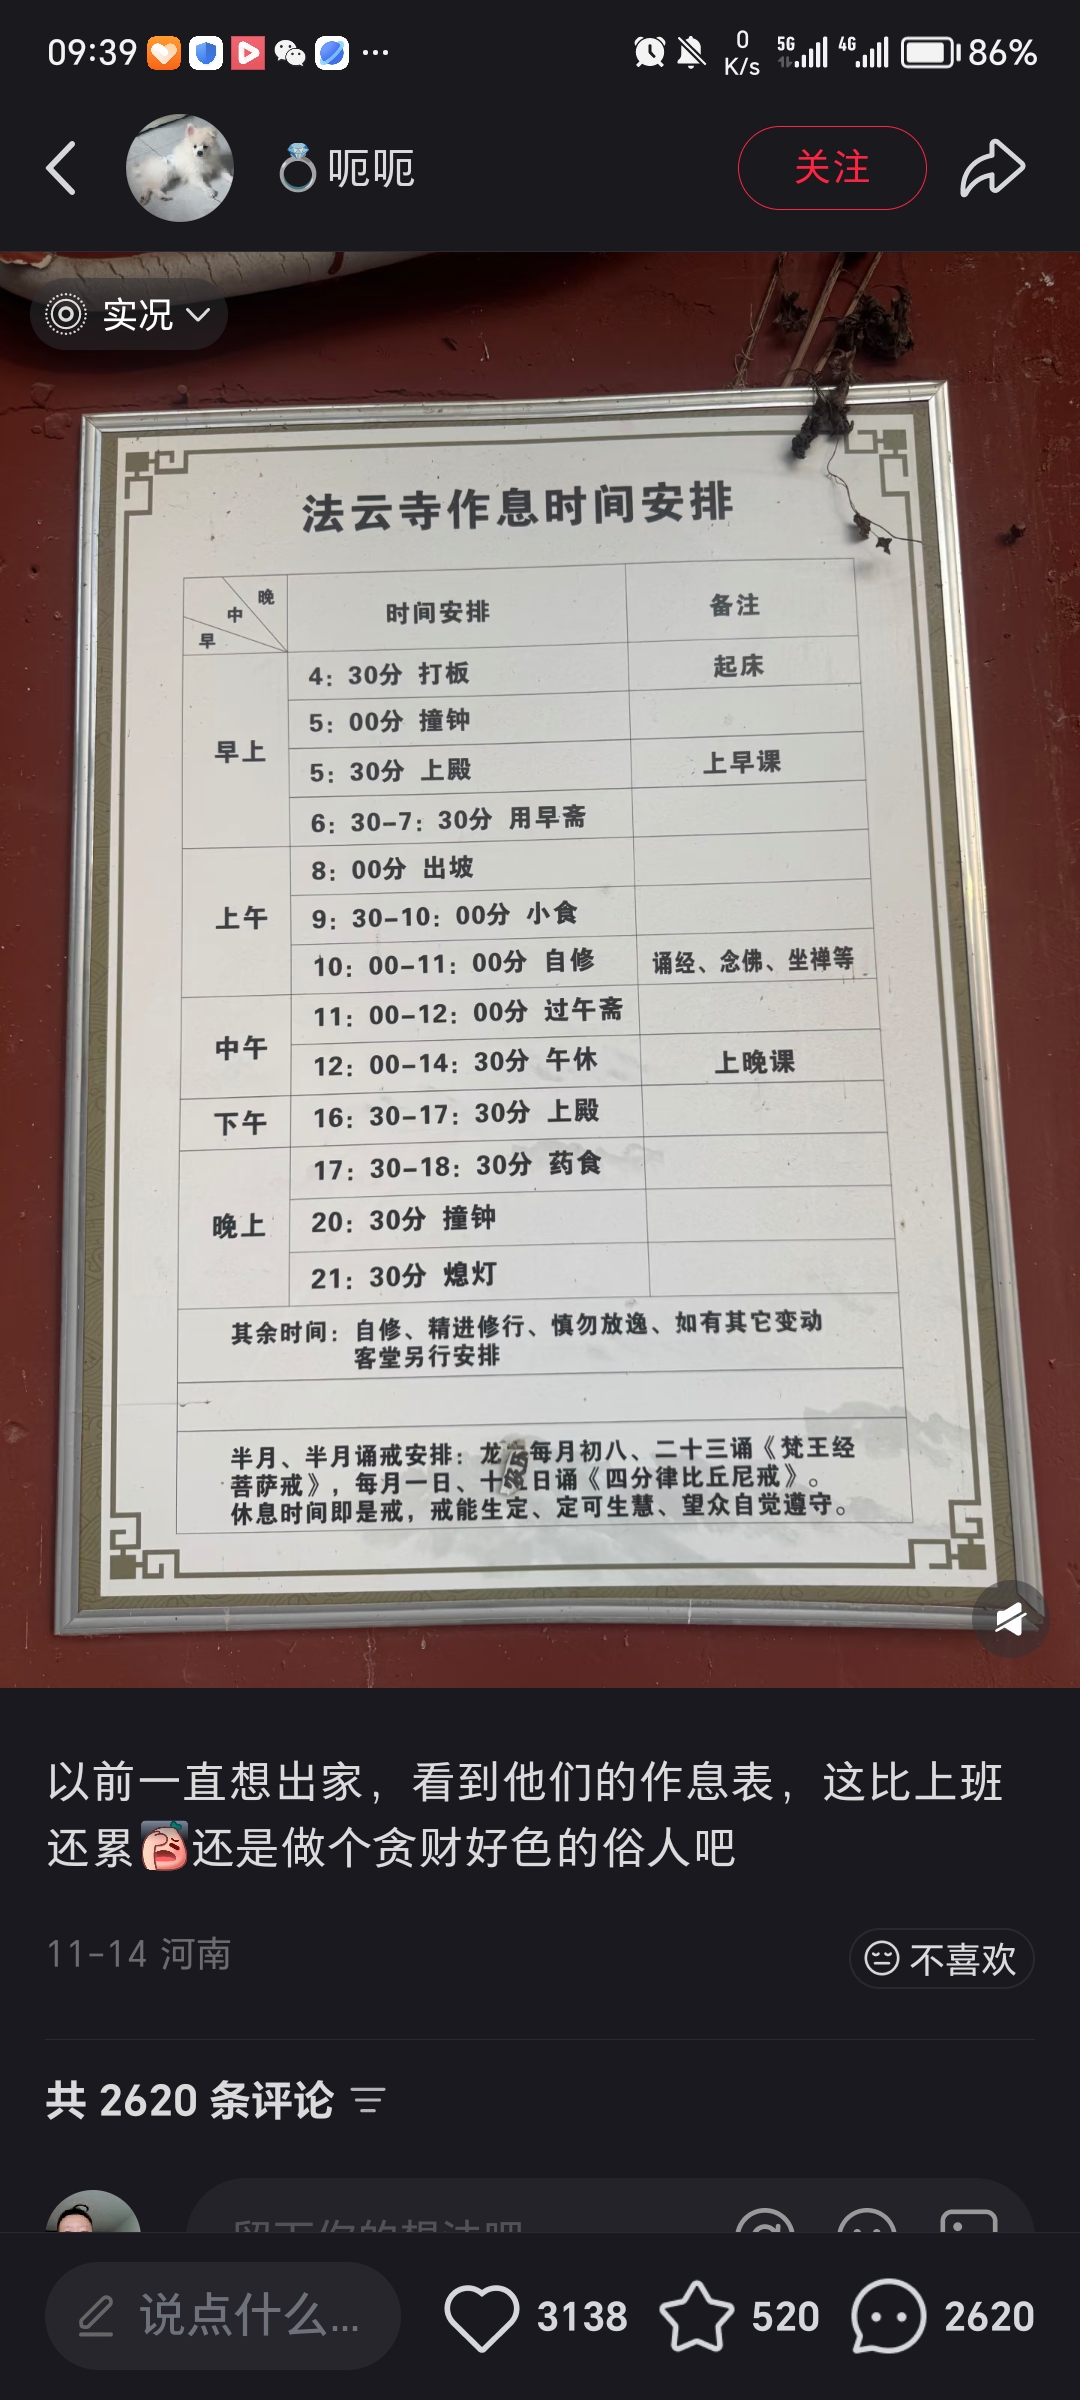 09:39
0
K/s
5G
4G
86%
呃呃
关注
实况
法云寺作息时间安排
晚
中
早
时间安排
备注
早上
4：30分 打板
起床
5：00分 撞钟
5：30分 上殿
上早课
6：30-7：30分 用早斋
上午
8：00分 出坡
9：30-10：00分 小食
10：00-11：00分 自修
诵经、念佛、坐禅等
中午
11：00-12：00分 过午斋
12：00-14：30分 午休
上晚课
下午
16：30-17：30分 上殿
晚上
17：30-18：30分 药食
20：30分 撞钟
21：30分 熄灯
其余时间：自修、精进修行、慎勿放逸、如有其它变动
客堂另行安排
半月、半月诵戒安排：龙 每月初八、二十三诵《梵王经
菩萨戒》，每月一日、十 日诵《四分律比丘尼戒》。
休息时间即是戒，戒能生定、定可生慧、望众自觉遵守。
以前一直想出家，看到他们的作息表，这比上班
还累还是做个贪财好色的俗人吧
11-14 河南
不喜欢
共 2620 条评论
留下你的想法吧
说点什么...
3138
520
2620